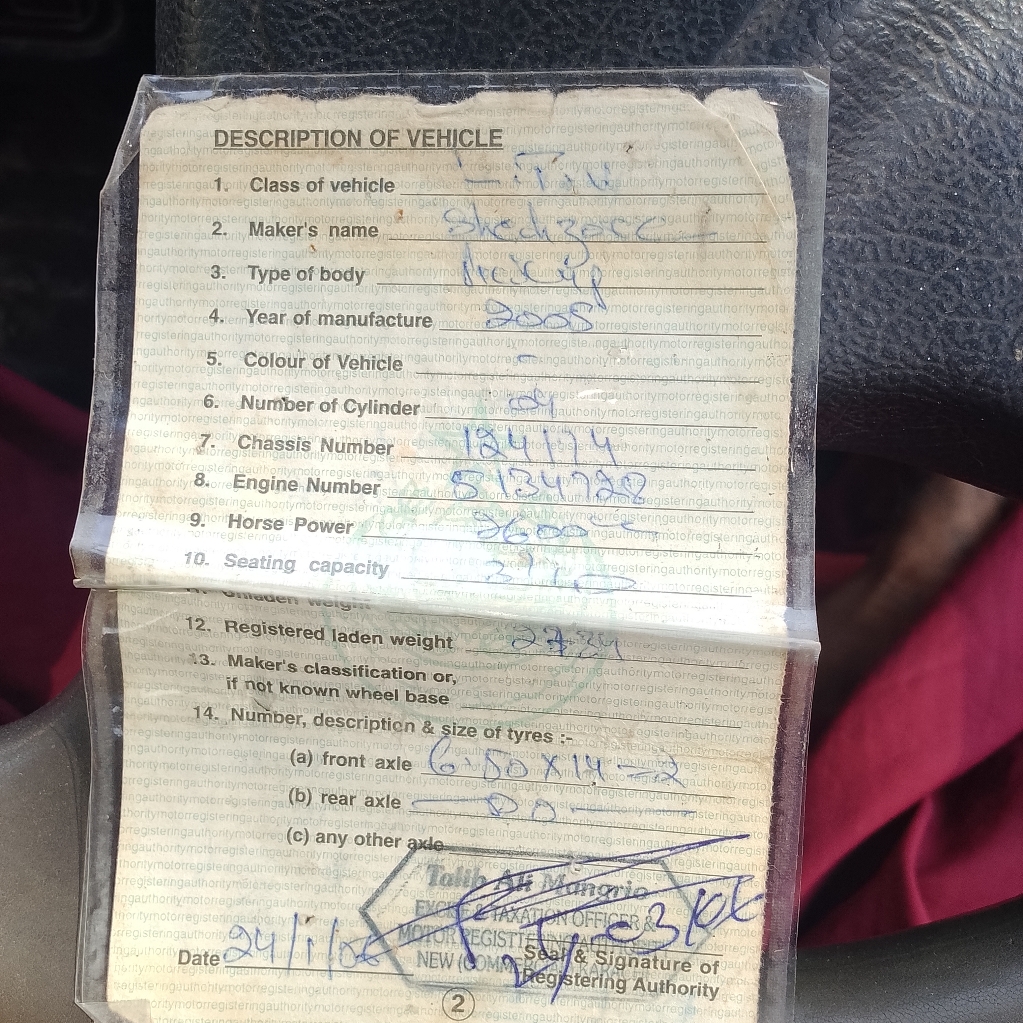 DESCRIPTION OF VEHICLE
1. Class of vehicle
2. Maker's name Shehzore
3. Type of body Pickup
4. Year of manufacture 2005
5. Colour of Vehicle -
6. Number of Cylinder 04
7. Chassis Number
8. Engine Number
9. Horse Power 2600cc
10. Seating capacity
11. Unladen weight
12. Registered laden weight
13. Maker's classification or,
if not known wheel base
14. Number, description & size of tyres :-
(a) front axle 6.50 x 14 - 2
(b) rear axle — Do —
(c) any other axle
Talib Ali Mangrio
EXCISE & TAXATION OFFICER &
MOTOR REGISTERING AUTHORITY
NEW (COMMERCIAL) KARACHI
Date 24/1/06
Seal & Signature of
Registering Authority
2